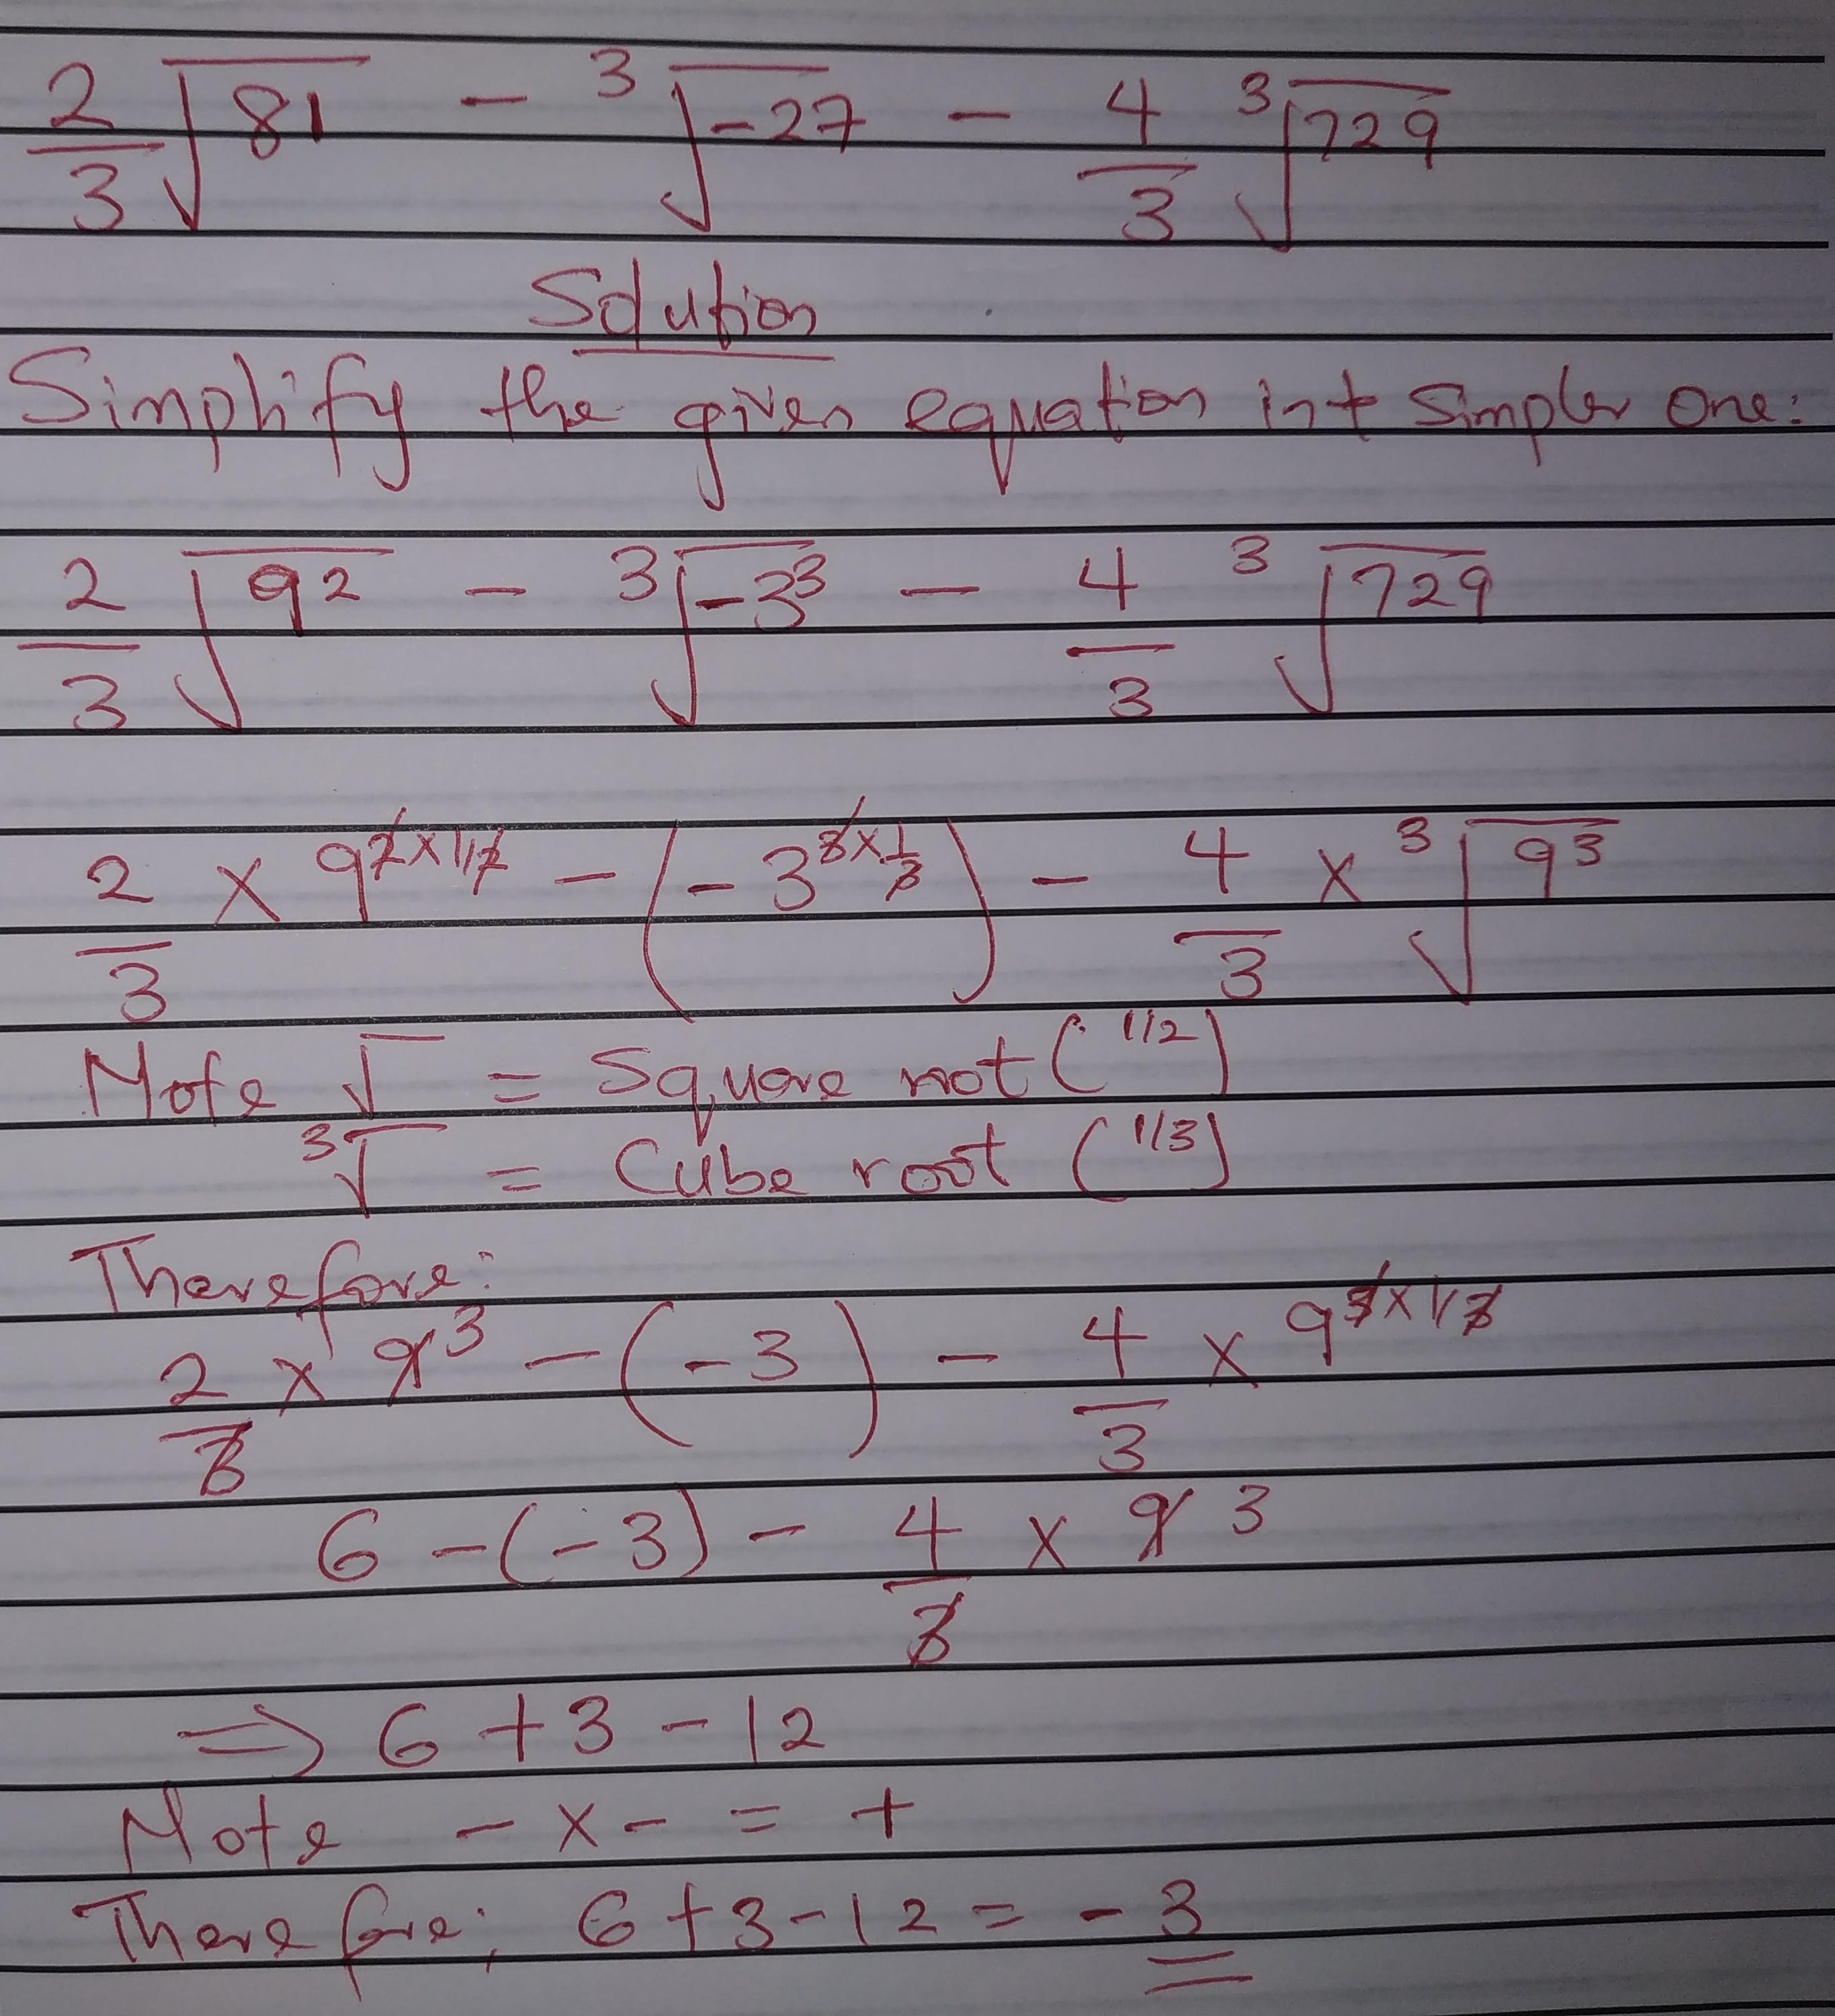 2/3 √81 - ³√-27 - 4/3 ³√729
Solution
Simplify the given equation int simpler one:
2/3 √9² - ³√-3³ - 4/3 ³√729
2/3 × 9^(2×1/2) - (-3^(3×1/3)) - 4/3 × ³√9³
Note √ = Square root (1/2)
³√ = Cube root (1/3)
Therefore:
2/3 × 9 3 - (-3) - 4/3 × 9^(3×1/3)
6 - (-3) - 4/3 × 9 3
⇒ 6 + 3 - 12
Note - × - = +
Therefore; 6 + 3 - 12 = - 3